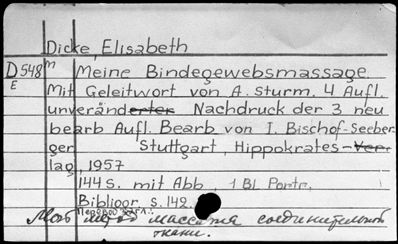 Dicke, Elisabeth
D 548 m Meine Bindegewebsmassage.
E Mit Geleitwort von A. Sturm. 4 Aufl.
unveränderter Nachdruck der 3 neu
bearb Aufl. Bearb von I. Bischof-Seeber
ger Stuttgart, Hippokrates-Ver
lag, 1957
144 s. mit Abb, 1 Bl Portr.
Bibliogr s. 142.
Перевод загл.:
Мой метод массажа соединительной
ткани.